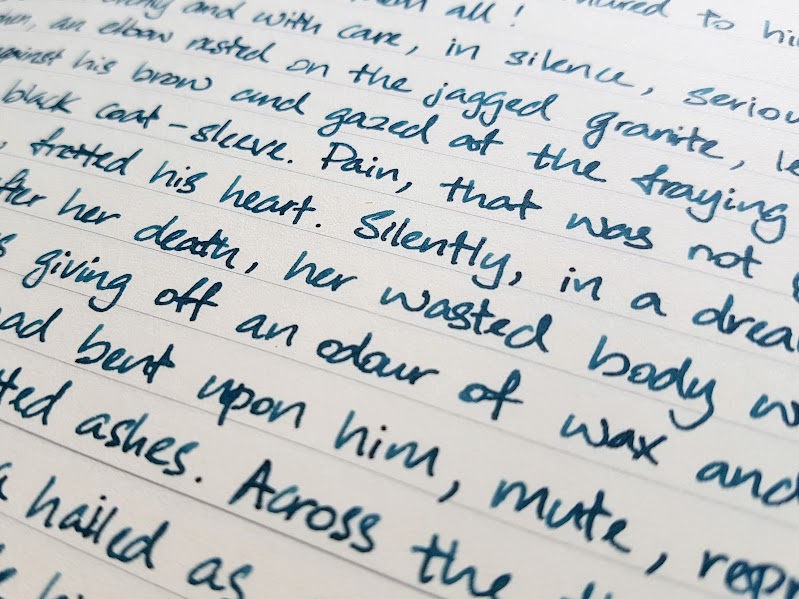 them all!
and with care, in silence, seriou
an elbow rested on the jagged granite, le
against his brow and gazed at the fraying
black coat-sleeve. Pain, that was not
, fretted his heart. Silently, in a drea
fter her death, her wasted body w
s giving off an odour of wax and
ad bent upon him, mute, repr
ted ashes. Across the th
a hailed as